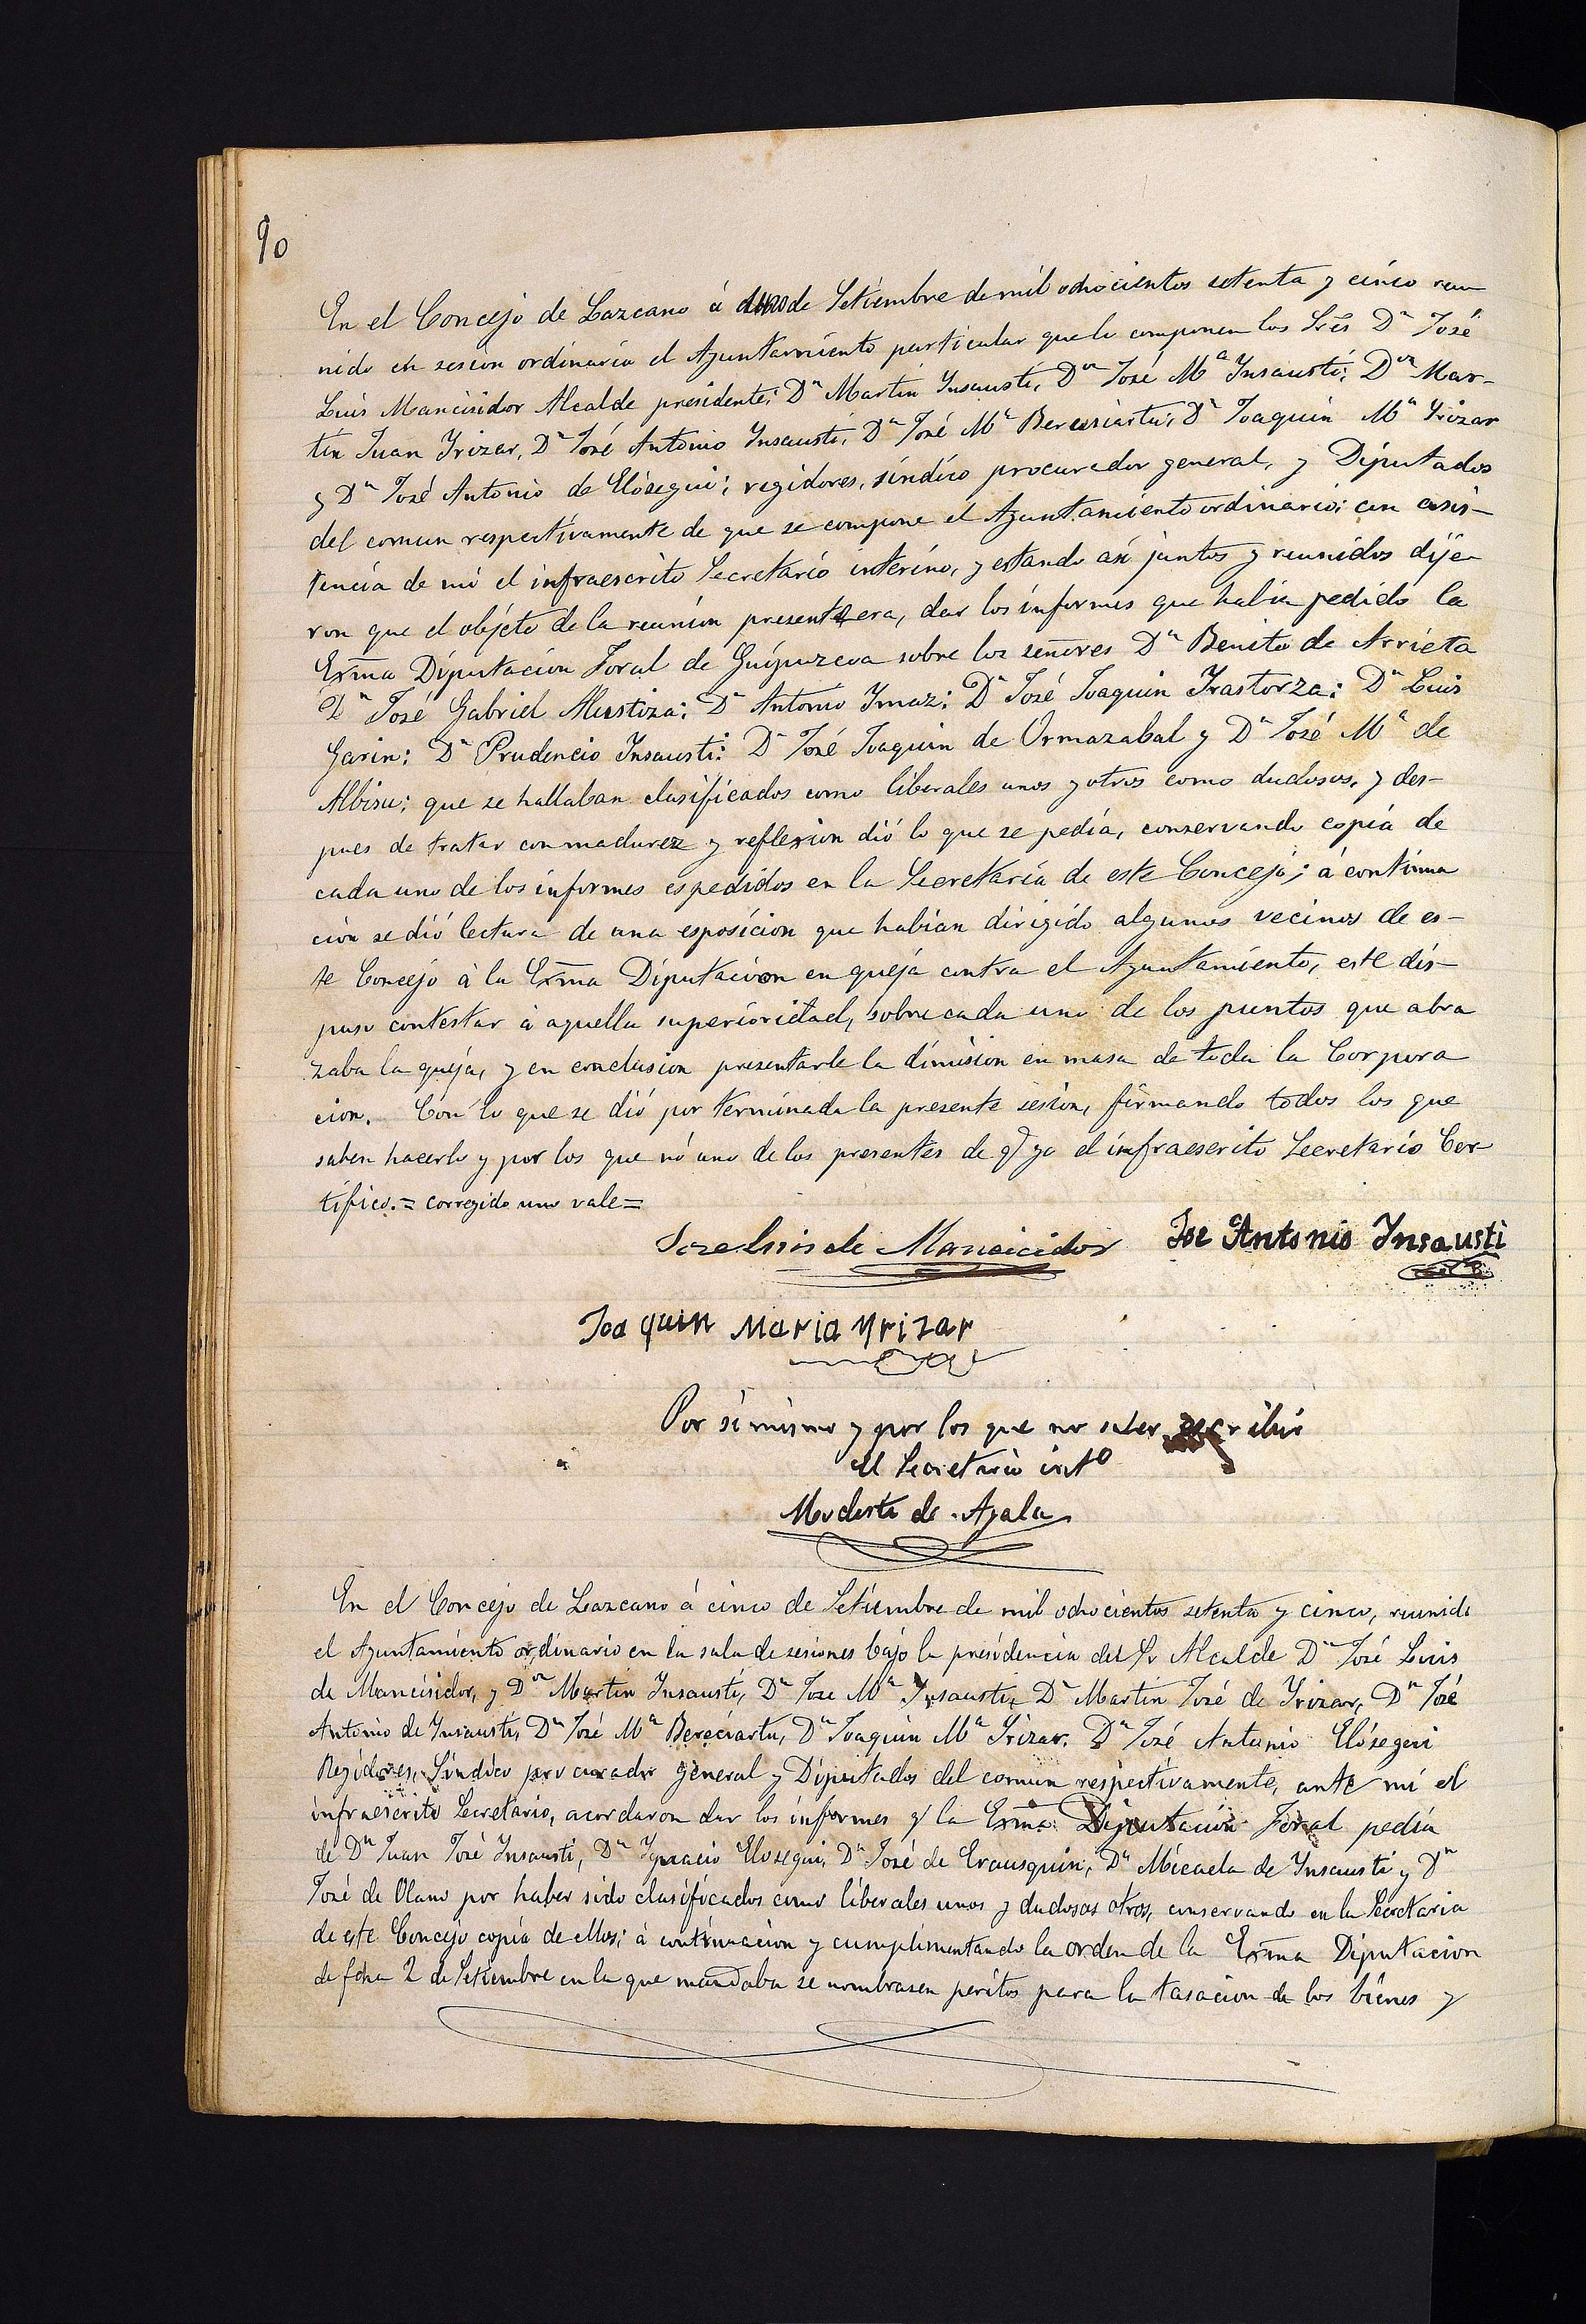 90
En el Concejo de Lazcano á uno de Setiembre de mil ochocientos setenta y cinco reu
nido en sesion ordinaria el Ayuntamiento particular que lo componen los Srēs Dn José
Luis Mancisidor Alcalde presidente: Dn Martin Ynsausti, Dn José Ma Ynsausti; Dn Mar-
tin Juan Yrizar, Dn José Antonio Ynsausti, Dn José Ma Bereciartu; Dn Joaquin Ma Yrizar
y Dn José Antonio de Elósegui; regidores, síndico procurador general, y Diputados
del comun respectivamente de que se compone el Ayuntamiento ordinario: con asis-
tencia de mi el infraescrito Secretario interino, y estando asi juntos y reunidos dije-
ron que el objeto de la reunion presente era, dar los informes que habia pedido la
Exm̄a Diputacion Foral de Guipuzcoa sobre los señores Dn Benito de Arrieta
Dn José Gabriel Mustiza: Dn Antonio Ymaz: Dn José Joaquin Yrastorza: Dn Luis
Garin: Dn Prudencio Ynsausti: Dn José Joaquin de Ormazabal y Dn José Ma de
Albisu; que se hallaban clasificados como liberales unos y otros como dudosos, y des-
pues de tratar con madurez y reflexion dió lo que se pedia, conservando copia de
cada uno de los informes espedidos en la Secretaria de este Concejo; á continua
cion se dió lectura de una esposicion que habian dirigido algunos vecinos de es-
te Concejo á la Exm̄a Diputacion en queja contra el Ayuntamiento, este dis-
puso contestar á aquella superioridad, sobre cada uno de los puntos que abra
zaba la queja, y en conclusion presentarle la dimision en masa de toda la Corpora
cion. Con lo que se dió por terminada la presente sesion, firmando todos los que
saben hacerlo y por los que nó uno de los presentes de q yo el infraescrito Secretario Cer-
tifico.= corregido uno vale=
Jose Luis de Mancicidor Jose Antonio Ynsausti
Joaquin Maria Yrizar
Por si mismo y por los que no saben escribir
El Secretario into
Modesto de Ayala
En el Concejo de Lazcano á cinco de Setiembre de mil ochocientos setenta y cinco, reunido
el Ayuntamiento ordinario en la sala de sesiones bajo la presidencia del Sr Alcalde Dn José Luis
de Mancisidor, y Dn Martin Ynsausti, Dn Jose Ma Ynsausti, Dn Martin José de Yrizar, Dn José
Antonio de Ynsausti, Dn José Ma Bereciartu, Dn Joaquin Ma Yrizar, Dn José Antonio Elósegui
Regidores, Síndico procurador general y Diputados del comun respectivamente, ante mí el
infraescrito Secretario, acordaron dar los informes q la Exm̄a Diputacion Foral pedia
de Dn Juan José Ynsausti, Dn Ygnacio Elosegui, Dn José de Erausquin, Da Micaela de Ynsausti y Dn
José de Olano por haber sido clasificados como liberales unos y dudosos otros, conservando en la Secretaria
de este Concejo copia de ellos; á continuacion y cumplimentando la orden de la Exm̄a Diputacion
de fcha 2 de Setiembre en la que mandaba se nombrasen peritos para la tasacion de los bienes y